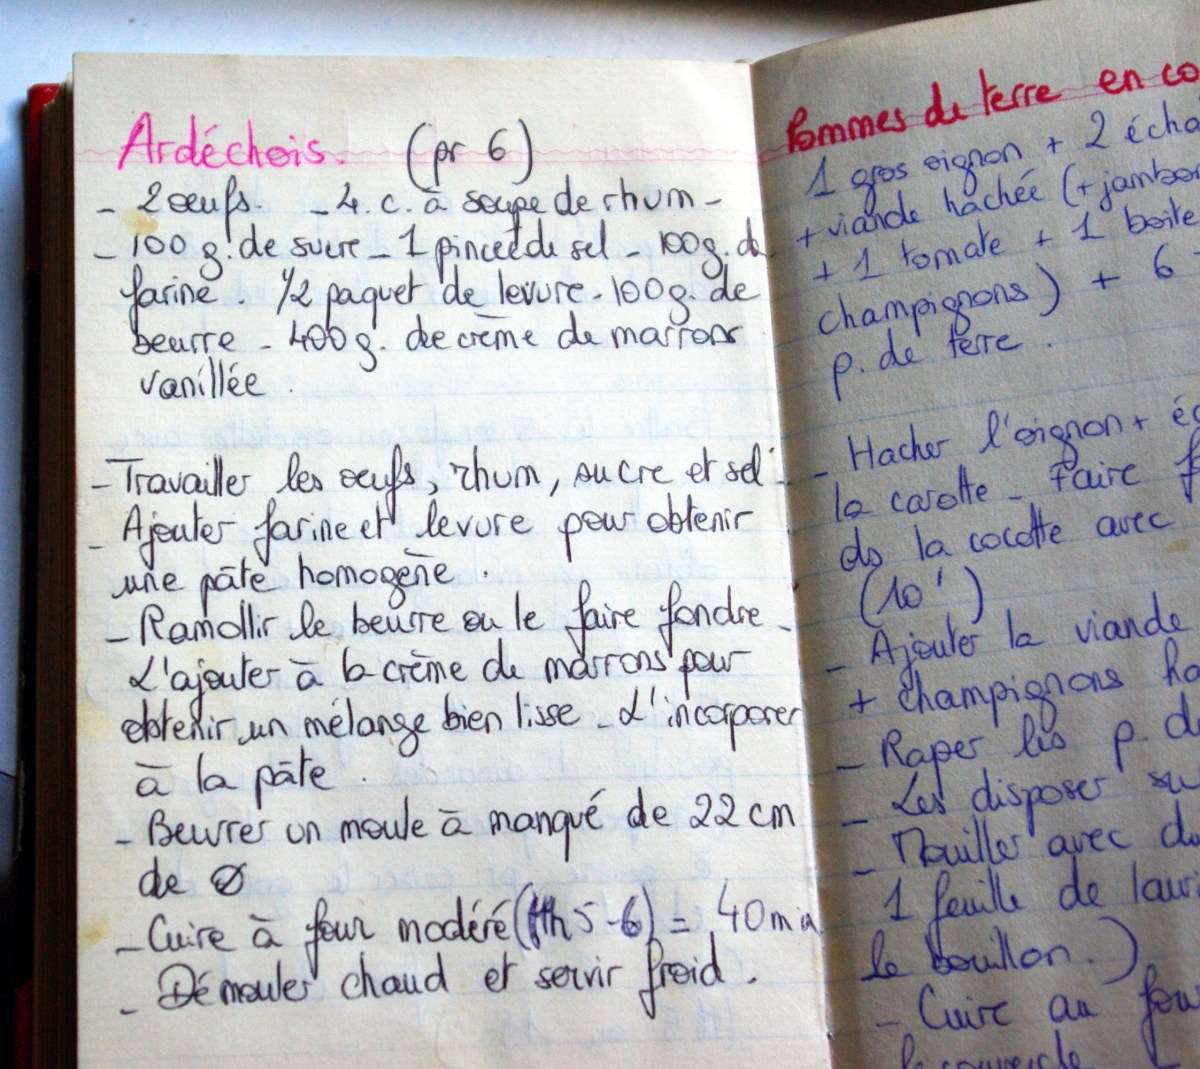 Ardéchois. (pr 6)
- 2 œufs. - 4. c. à soupe de rhum -
- 100 g. de sucre - 1 pincée de sel - 100g. de
farine. 1/2 paquet de levure - 100g. de
beurre - 400g. de crème de marrons
vanillée.
- Travailler les œufs, rhum, sucre et sel
- Ajouter farine et levure pour obtenir
une pâte homogène.
- Ramollir le beurre ou le faire fondre -
L'ajouter à la crème de marrons pour
obtenir un mélange bien lisse - L'incorporer
à la pâte.
- Beurrer un moule à manqué de 22 cm
de Ø
- Cuire à four modéré (th 5-6) = 40 min
- Démouler chaud et servir froid.
Pommes de terre en co
1 gros oignon + 2 écha
+ viande hachée (+ jambon
+ 1 tomate + 1 boite
champignons) + 6
p. de terre.
- Hacher l'oignon + éc
la carotte - Faire f
ds la cocotte avec
(10')
- Ajouter la viande
+ champignons ha
- Raper les p. d
- Les disposer su
- Mouiller avec du
1 feuille de lauri
le bouillon.)
- Cuire au fou
le couvercle